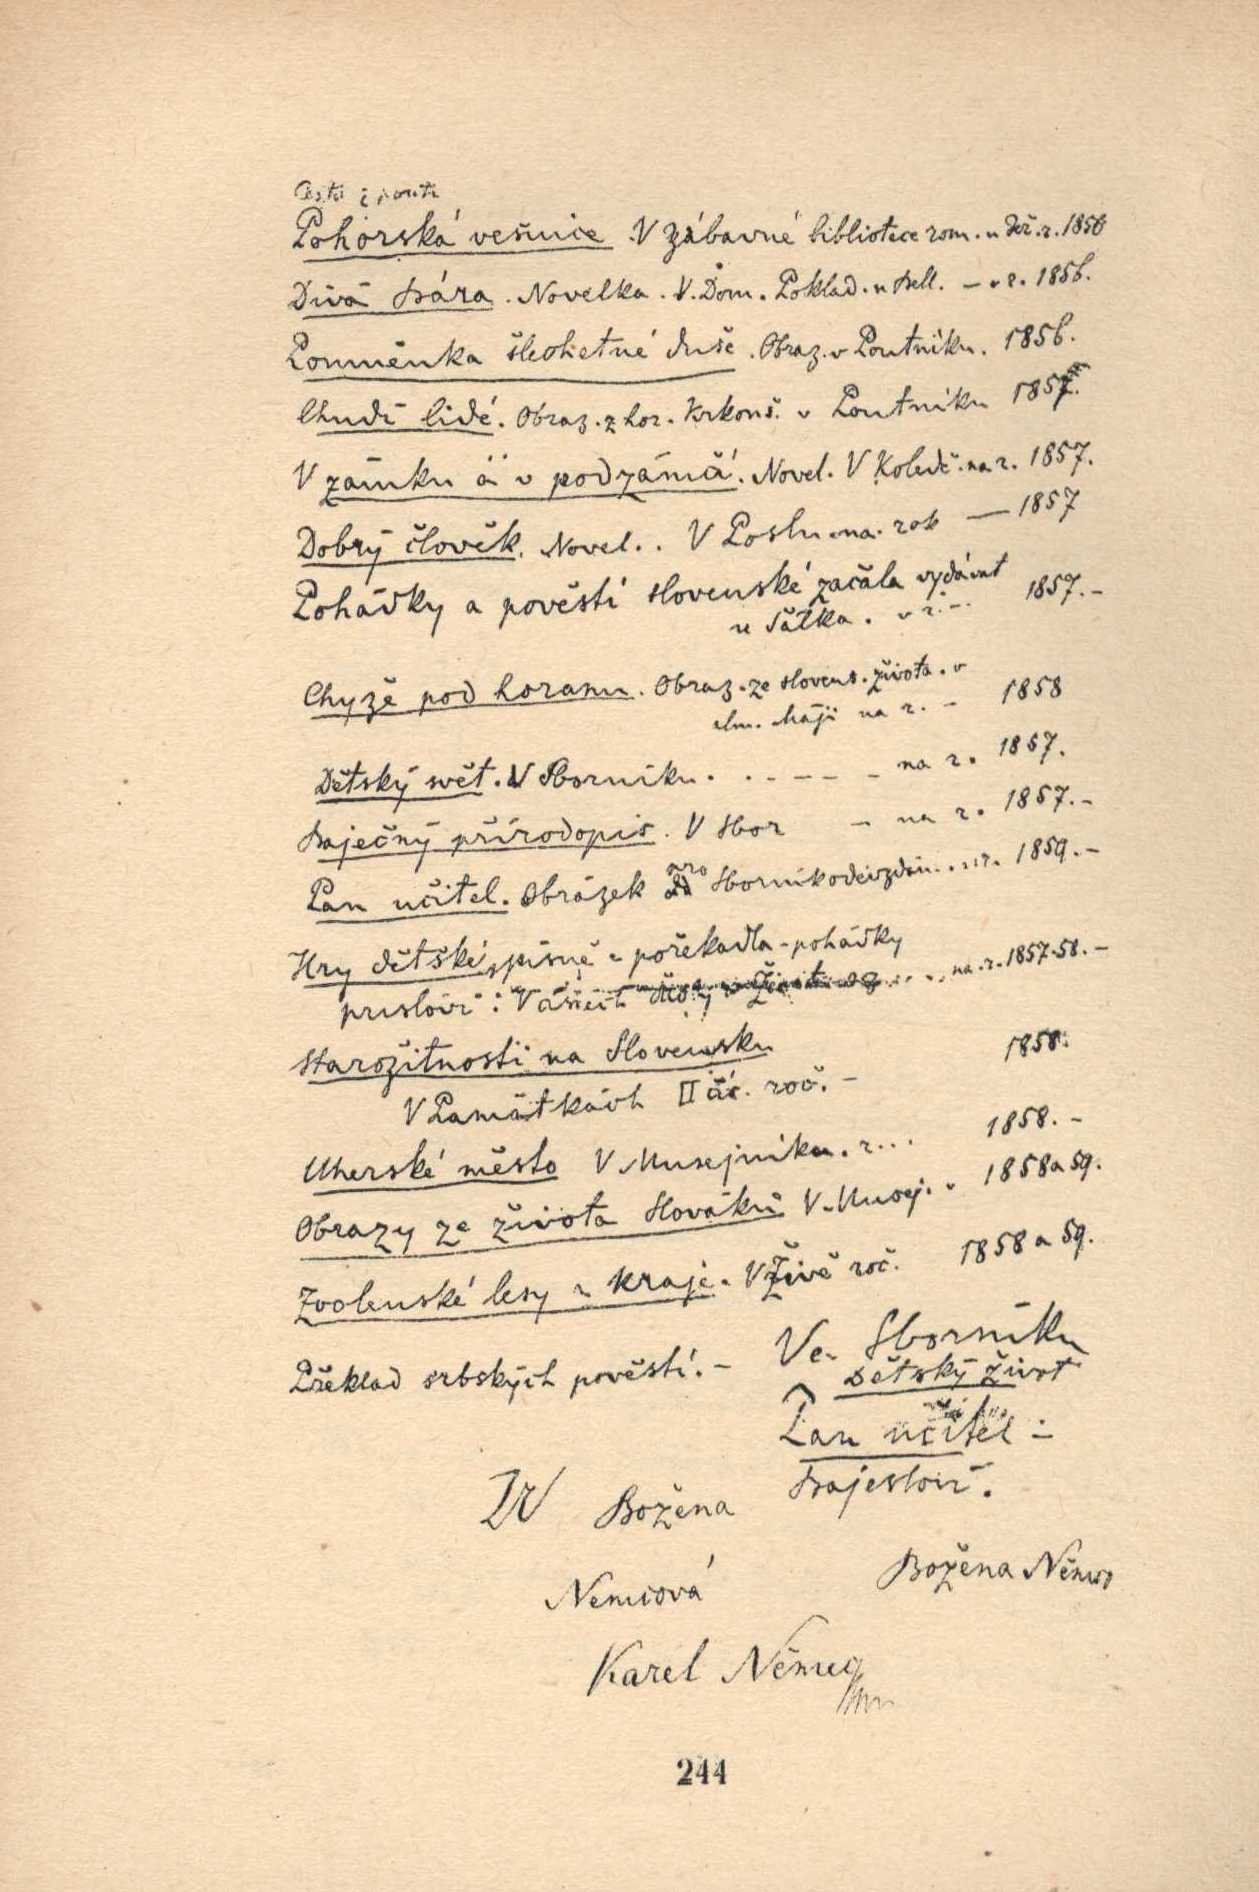 Cesta z pouti
Pohorská vesnice V zábavné bibliotece rom. u Jeř. r. 1856
Divá Bára. Novelka. V. Dom. Poklad. u Bell. — v r. 1856.
Pomněnka šlechetné duše. Obraz. v Poutníku. 1856.
Chudí lidé. Obraz. z hor. Krkonš. v Poutníku 1857.
V zámku a v podzámčí. Novel. V Koledě. na r. 1857.
Dobrý člověk. Novel.. V Poslu na. rok — 1857
Pohádky a pověsti slovenské začala vydávat
u Šálka. v r. — 1857. —
Chyže pod horami. Obraz. ze slovens. života. v
alm. Máji na r. — 1858
Dětský svět. V Sborníku. . . - — — - na r. 1857.
Baječný přírodopis. V Sbor — na r. 1857. —
Pan učitel. Obrázek pro Sborník r. 1859. —
Hry dětské, písně a pořekadla - pohádky
přísloví: V na. r. 1857-58. —
Starožitnosti na Slovensku 1858.
V Památkách II roč. —
Uherské město V Musejníku. r... 1858. —
Obrazy ze života Slováků V Musej. v 1858 a 59.
Zvolenské lesy a kraje. V Živě roč. 1858 a 59.
Překlad srbských pověstí. — Ve Sborníku
Dětský život
Pan učitel —
Bajesloví.
Božena
Božena Němco
Nemcová
Karel Němec
244